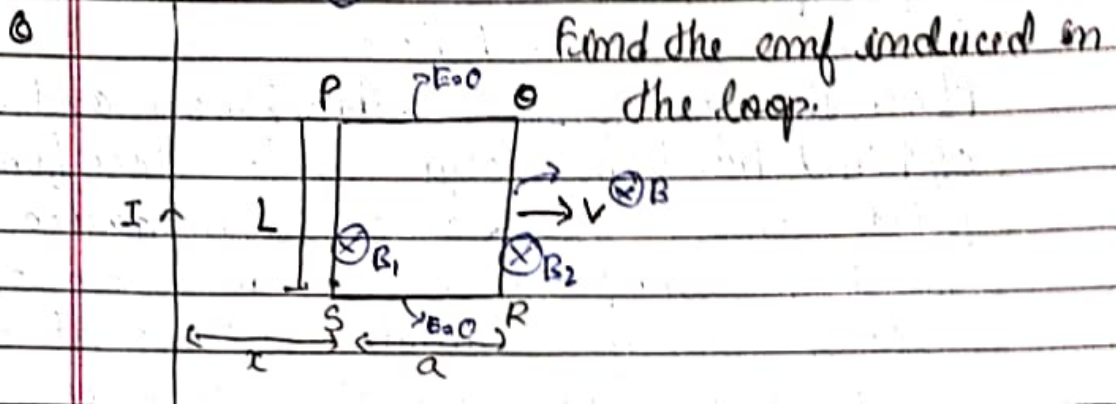 Q
Find the emf induced in
the loop.
P E=0 Q
I L V ⊗B
⊗B₁ ⊗B₂
S E=0 R
x a